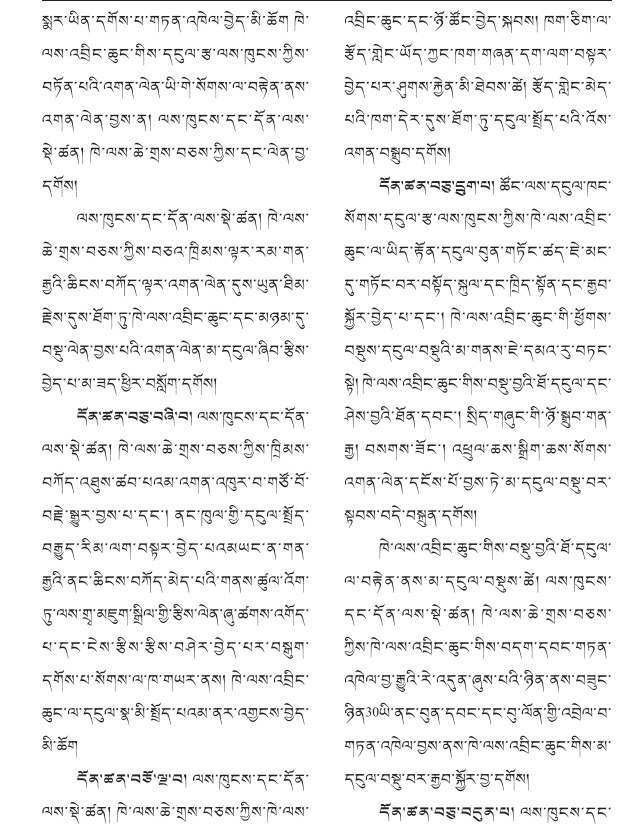 སྨར་ཡིན་དགོས་པ་གཏན་འཁེལ་བྱེད་མི་ཆོག ཁེ་
ལས་འབྲིང་ཆུང་གིས་དངུལ་རྩ་ལས་ཁུངས་ཀྱིས་
བཏོན་པའི་འགན་ལེན་ཡི་གེ་སོགས་ལ་བརྟེན་ནས་
འགན་ལེན་བྱས་ན། ལས་ཁུངས་དང་དོན་ལས་
སྡེ་ཚན། ཁེ་ལས་ཆེ་གྲས་བཅས་ཀྱིས་དང་ལེན་བྱ་
དགོས།
ལས་ཁུངས་དང་དོན་ལས་སྡེ་ཚན། ཁེ་ལས་
ཆེ་གྲས་བཅས་ཀྱིས་བཅའ་ཁྲིམས་ལྟར་རམ་གན་
རྒྱའི་ཆིངས་བཀོད་ལྟར་འགན་ལེན་དུས་ཡུན་ཐིམ་
རྗེས་དུས་ཐོག་ཏུ་ཁེ་ལས་འབྲིང་ཆུང་དང་མཉམ་དུ་
བསྡུ་ལེན་བྱས་པའི་འགན་ལེན་མ་དངུལ་ཞིབ་རྩིས་
བྱེད་པ་མ་ཟད་ཕྱིར་བསློག་དགོས།
དོན་ཚན་བཅུ་བཞི་བ། ལས་ཁུངས་དང་དོན་
ལས་སྡེ་ཚན། ཁེ་ལས་ཆེ་གྲས་བཅས་ཀྱིས་ཁྲིམས་
བཀོད་འཐུས་ཚབ་པའམ་འགན་འཁུར་བ་གཙོ་བོ་
བརྗེ་སྒྱུར་བྱས་པ་དང་། ནང་ཁུལ་གྱི་དངུལ་སྤྲོད་
བརྒྱུད་རིམ་ལག་བསྟར་བྱེད་པའམཡང་ན་གན་
རྒྱའི་ནང་ཆིངས་བཀོད་མེད་པའི་གནས་ཚུལ་འོག་
ཏུ་ལས་གྲྭ་མཇུག་སྒྲིལ་གྱི་རྩིས་ལེན་ཞུ་ཚགས་འགོད་
པ་དང་ངེས་རྩིས་རྩིས་བཤེར་བྱེད་པར་བསྒུག་
དགོས་པ་སོགས་ལ་ཁ་གཡར་ནས། ཁེ་ལས་འབྲིང་
ཆུང་ལ་དངུལ་སྣ་མི་སྤྲོད་པའམ་ནར་འགྱངས་བྱེད་
མི་ཆོག
དོན་ཚན་བཅོ་ལྔ་བ། ལས་ཁུངས་དང་དོན་
ལས་སྡེ་ཚན། ཁེ་ལས་ཆེ་གྲས་བཅས་ཀྱིས་ཁེ་ལས་
འབྲིང་ཆུང་དང་ཉོ་ཚོང་བྱེད་སྐབས། ཁག་ཅིག་ལ་
རྩོད་གླེང་ཡོད་ཀྱང་ཁག་གཞན་དག་ལག་བསྟར་
བྱེད་པར་ཤུགས་རྐྱེན་མི་ཐེབས་ཚེ། རྩོད་གླེང་མེད་
པའི་ཁག་དེར་དུས་ཐོག་ཏུ་དངུལ་སྤྲོད་པའི་འོས་
འགན་བསྒྲུབ་དགོས།
དོན་ཚན་བཅུ་དྲུག་པ། ཚོང་ལས་དངུལ་ཁང་
སོགས་དངུལ་རྩ་ལས་ཁུངས་ཀྱིས་ཁེ་ལས་འབྲིང་
ཆུང་ལ་ཡིད་རྟོན་དངུལ་བུན་གཏོང་ཚད་ཇེ་མང་
དུ་གཏོང་བར་བསྟོད་སྐུལ་དང་ཁྲིད་སྟོན་དང་རྒྱབ་
སྐྱོར་བྱེད་པ་དང་། ཁེ་ལས་འབྲིང་ཆུང་གི་ཕྱོགས་
བསྡུས་དངུལ་བསྡུའི་མ་གནས་ཇེ་དམའ་རུ་བཏང་
སྟེ། ཁེ་ལས་འབྲིང་ཆུང་གིས་བསྡུ་བྱའི་ཐོ་དངུལ་དང་
ཤེས་བྱའི་ཐོན་དབང་། སྲིད་གཞུང་གི་ཉོ་སྒྲུབ་གན་
རྒྱ། བསགས་ཟོང་། འཕྲུལ་ཆས་སྒྲིག་ཆས་སོགས་
འགན་ལེན་དངོས་པོ་བྱས་ཏེ་མ་དངུལ་བསྡུ་བར་
སྟབས་བདེ་བསྐྲུན་དགོས།
ཁེ་ལས་འབྲིང་ཆུང་གིས་བསྡུ་བྱའི་ཐོ་དངུལ་
ལ་བརྟེན་ནས་མ་དངུལ་བསྡུས་ཚེ། ལས་ཁུངས་
དང་དོན་ལས་སྡེ་ཚན། ཁེ་ལས་ཆེ་གྲས་བཅས་
ཀྱིས་ཁེ་ལས་འབྲིང་ཆུང་གིས་བདག་དབང་གཏན་
འཁེལ་བྱ་རྒྱུའི་རེ་འདུན་ཞུས་པའི་ཉིན་ནས་བཟུང་
ཉིན30ཡི་ནང་བུན་དབང་དང་བུ་ལོན་གྱི་འབྲེལ་བ་
གཏན་འཁེལ་བྱས་ནས་ཁེ་ལས་འབྲིང་ཆུང་གིས་མ་
དངུལ་བསྡུ་བར་རྒྱབ་སྐྱོར་བྱ་དགོས།
དོན་ཚན་བཅུ་བདུན་པ། ལས་ཁུངས་དང་